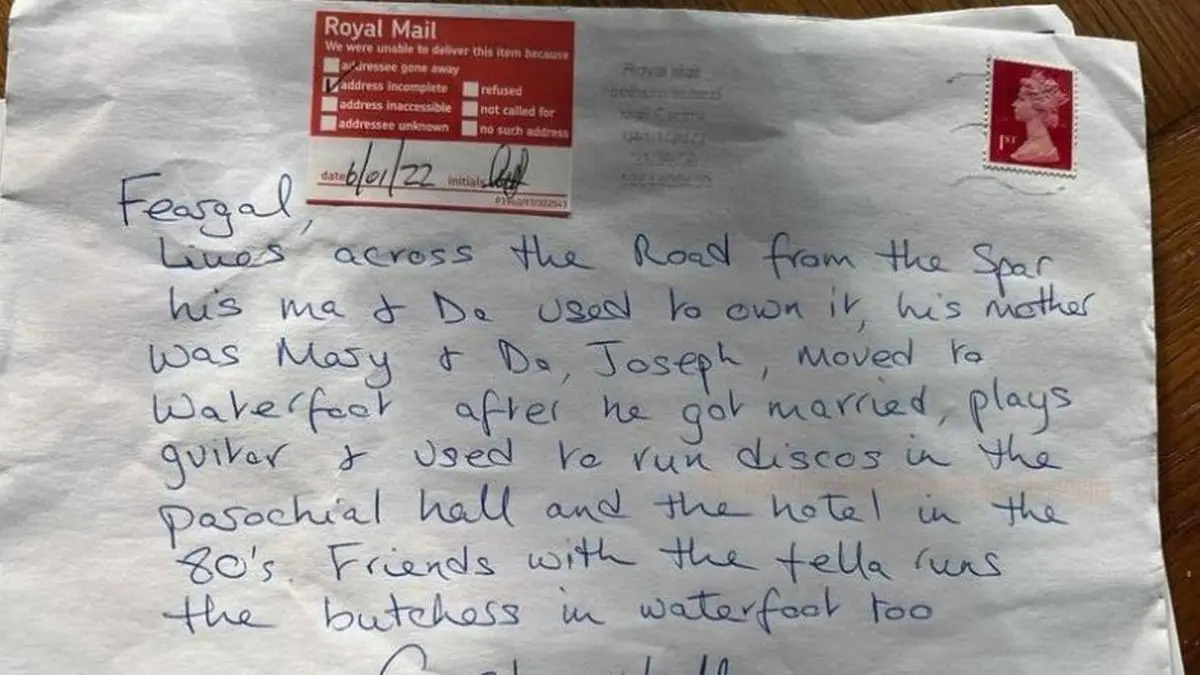 Royal Mail
We were unable to deliver this item because
addressee gone away
address incomplete
refused
address inaccessible
not called for
addressee unknown
no such address
date 6/01/22 initials
Royal Mail
Mail Centre
1ST
Feargal,
Lives across the Road from the Spar
his ma & Da used to own it, his mother
was Mary & Da, Joseph, moved to
Waterfoot after he got married, plays
guitar & used to run discos in the
parochial hall and the hotel in the
80's. Friends with the fella runs
the butchers in waterfoot too